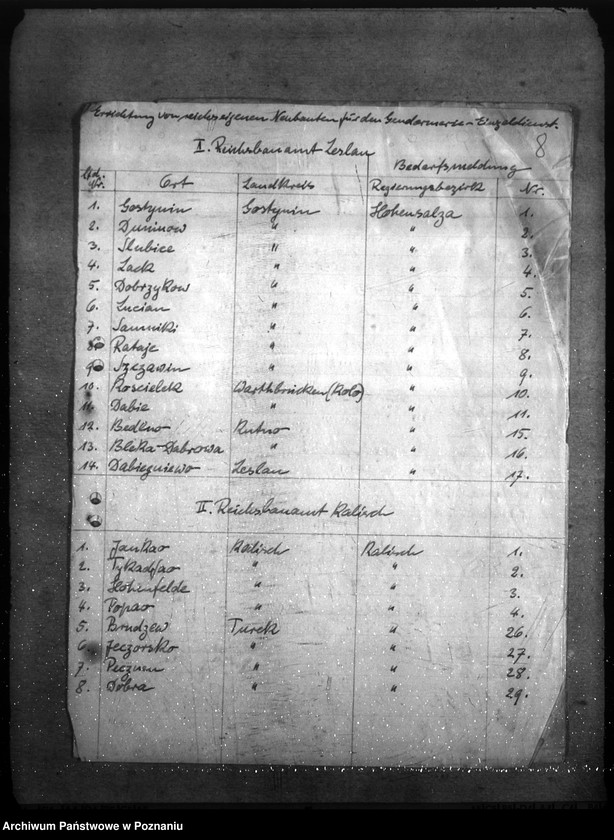 Errichtung von reichseigenen Neubauten für den Gendarmerie-Einzeldienst.
8
I. Reichsbauamt Leslau
Bedarfsmeldung
Lfd. Nr. Ort Landkreis Regierungsbezirk Nr.
1. Gostynin Gostynin Hohensalza 1.
2. Duninow " " 2.
3. Slubice " " 3.
4. Lack " " 4.
5. Dobrzykow " " 5.
6. Lucian " " 6.
7. Sanniki " " 7.
8. Rataje " " 8.
9. Szczawin " " 9.
10. Koscielek Warthbrücken (Kolo) " 10.
11. Dabie " " 11.
12. Bedlno Kutno " 15.
13. Bleka-Dabrowa " " 16.
14. Dabiezniewo Leslau " 17.
II. Reichsbauamt Kalisch
1. Jankao Kalisch Kalisch 1.
2. " " 2.
3. Hohenfelde " " 3.
4. Popao " " 4.
5. Brudzew Turek " 26.
6. Jeczorsko " " 27.
7. Pecznew " " 28.
8. Dobra " " 29.
Archiwum Państwowe w Poznaniu